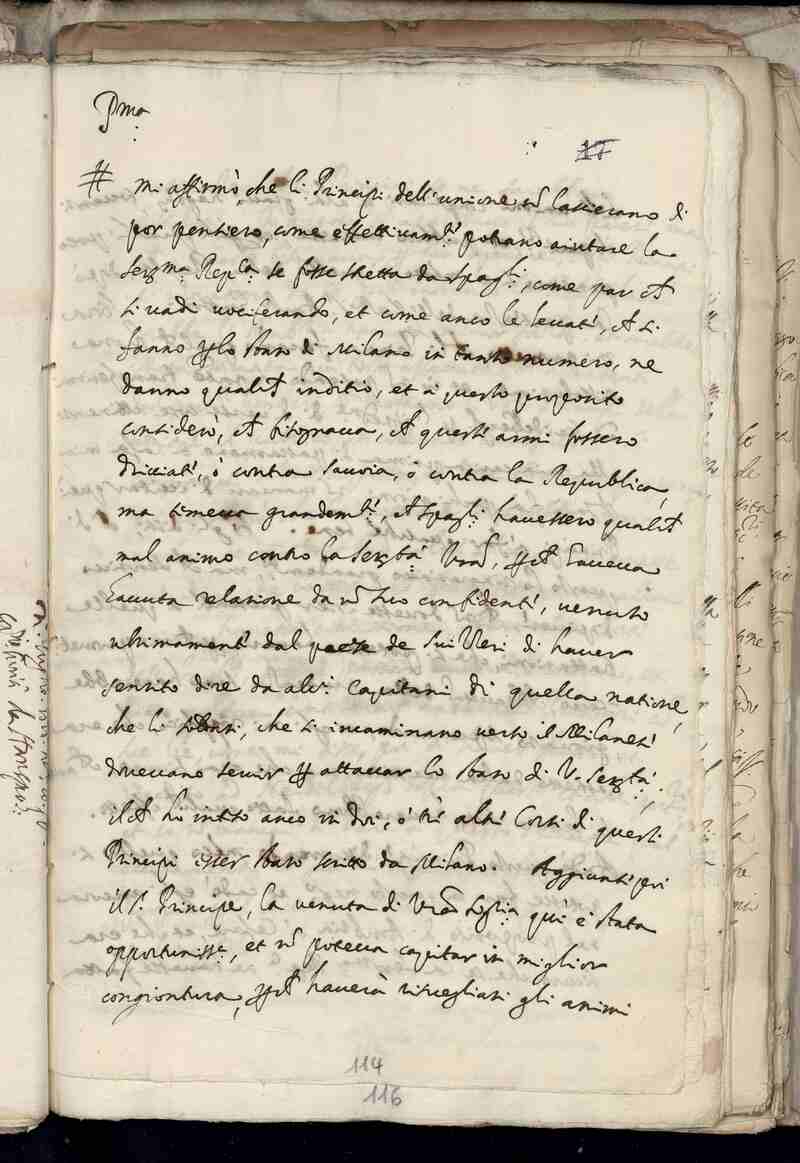 Pma
17
# mi affirmò, che li Principi dell'unione nō lascierano di
por pensiero, come effettivamte potrano aiutare la
Serma Repca se fosse stretta da Spagli, come par ch
si vadi vociferando, et come anco le levate, ch si
fanno nello stato di Milano in tanto numero, ne
danno qualch inditio, et à questo proposito
considerò, ch bisognava, ch queste armi fossero
drizzate, ò contra Savoia, ò contra la Republica,
ma temeva grandemte, ch Spagli havessero qualch
mal animo contro la Sertà Vra, perch haveva
havuta relatione da un suo confidente, venuto
ultimamente dal paese de Suizzeri di haver
sentito dire da alcni Capitani di quella natione,
che li soldati, che si incaminano verso il Milanese
dovevano servir per attaccar lo stato di V. Sertà,
il ch hò inteso anco in doi, ò trè altre Corti di questi
Principi esser stato scritto da Milano. Aggiunsemi
il Sr Principe, la venuta di Vra Sigria quì è stata
opportunissa, et nō poteva capitar in miglior
congiontura, perch haverà risvegliati gli animi
114
116